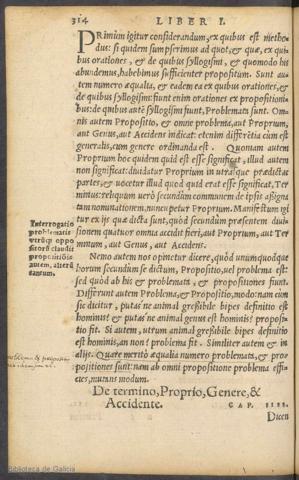 314 LIBER I.
PRimum igitur considerandum, ex quibus est metho-
dus: si quidem sumpserimus ad quot, & quæ, ex qui-
bus orationes, & de quibus syllogismi, & quomodo his
abundemus, habebimus sufficienter propositum. Sunt au-
tem numero æqualia, & eadem ea ex quibus orationes, &
de quibus syllogismi: fiunt enim orationes ex propositioni-
bus: de quibus autẽ syllogismi sunt, Problemata sunt. Om-
nis autem Propositio, & omne problema, aut Proprium,
aut Genus, aut Accidens indicat: etenim differẽtia cùm est
generalis, cum genere ordinanda est. Quoniam autem
Proprium hoc quidem quid est esse significat, illud autem
non significat: diuidatur Proprium in utrasque prædictas
partes, & uocetur illud quod quid erat esse significat, Ter-
minus: reliquum uerò secundum communem de ipsis assigna-
tam nominationem, nuncupetur Proprium. Manifestum igi-
tur ex ijs quæ dicta sunt, quòd secundum præsentem diui-
sionem quatuor omnia accidit fieri, aut Proprium, aut Ter
minum, aut Genus, aut Accidens.
Interrogatio
problematis
utrāque oppo
sitorũ claudit
propositiōis
autem, alterā
tantum.
Nemo autem nos opinetur dicere, quòd unumquodque
horum secundum se dictum, Propositio, uel problema est:
sed quòd ab his & problemata, & propositiones fiunt.
Differunt autem Problema, & Propositio, modo: nam cùm
sic dicitur, putas'ne animal gresibile bipes definitio est
hominis? & putas'ne animal genus est hominis? propositio
tio fit. Si autem, utrum animal gresibile bipes definitio
est hominis, an non? problema fit. Similiter autem & in
alijs. Quare meritò æqualia numero problemata, & pro-
positiones sunt: nam ab omni propositione problema effi-
cies, mutans modum.
De termino, Proprio, Genere, &
Accidente. CAP. IIII.
Dicen
Biblioteca de Galicia